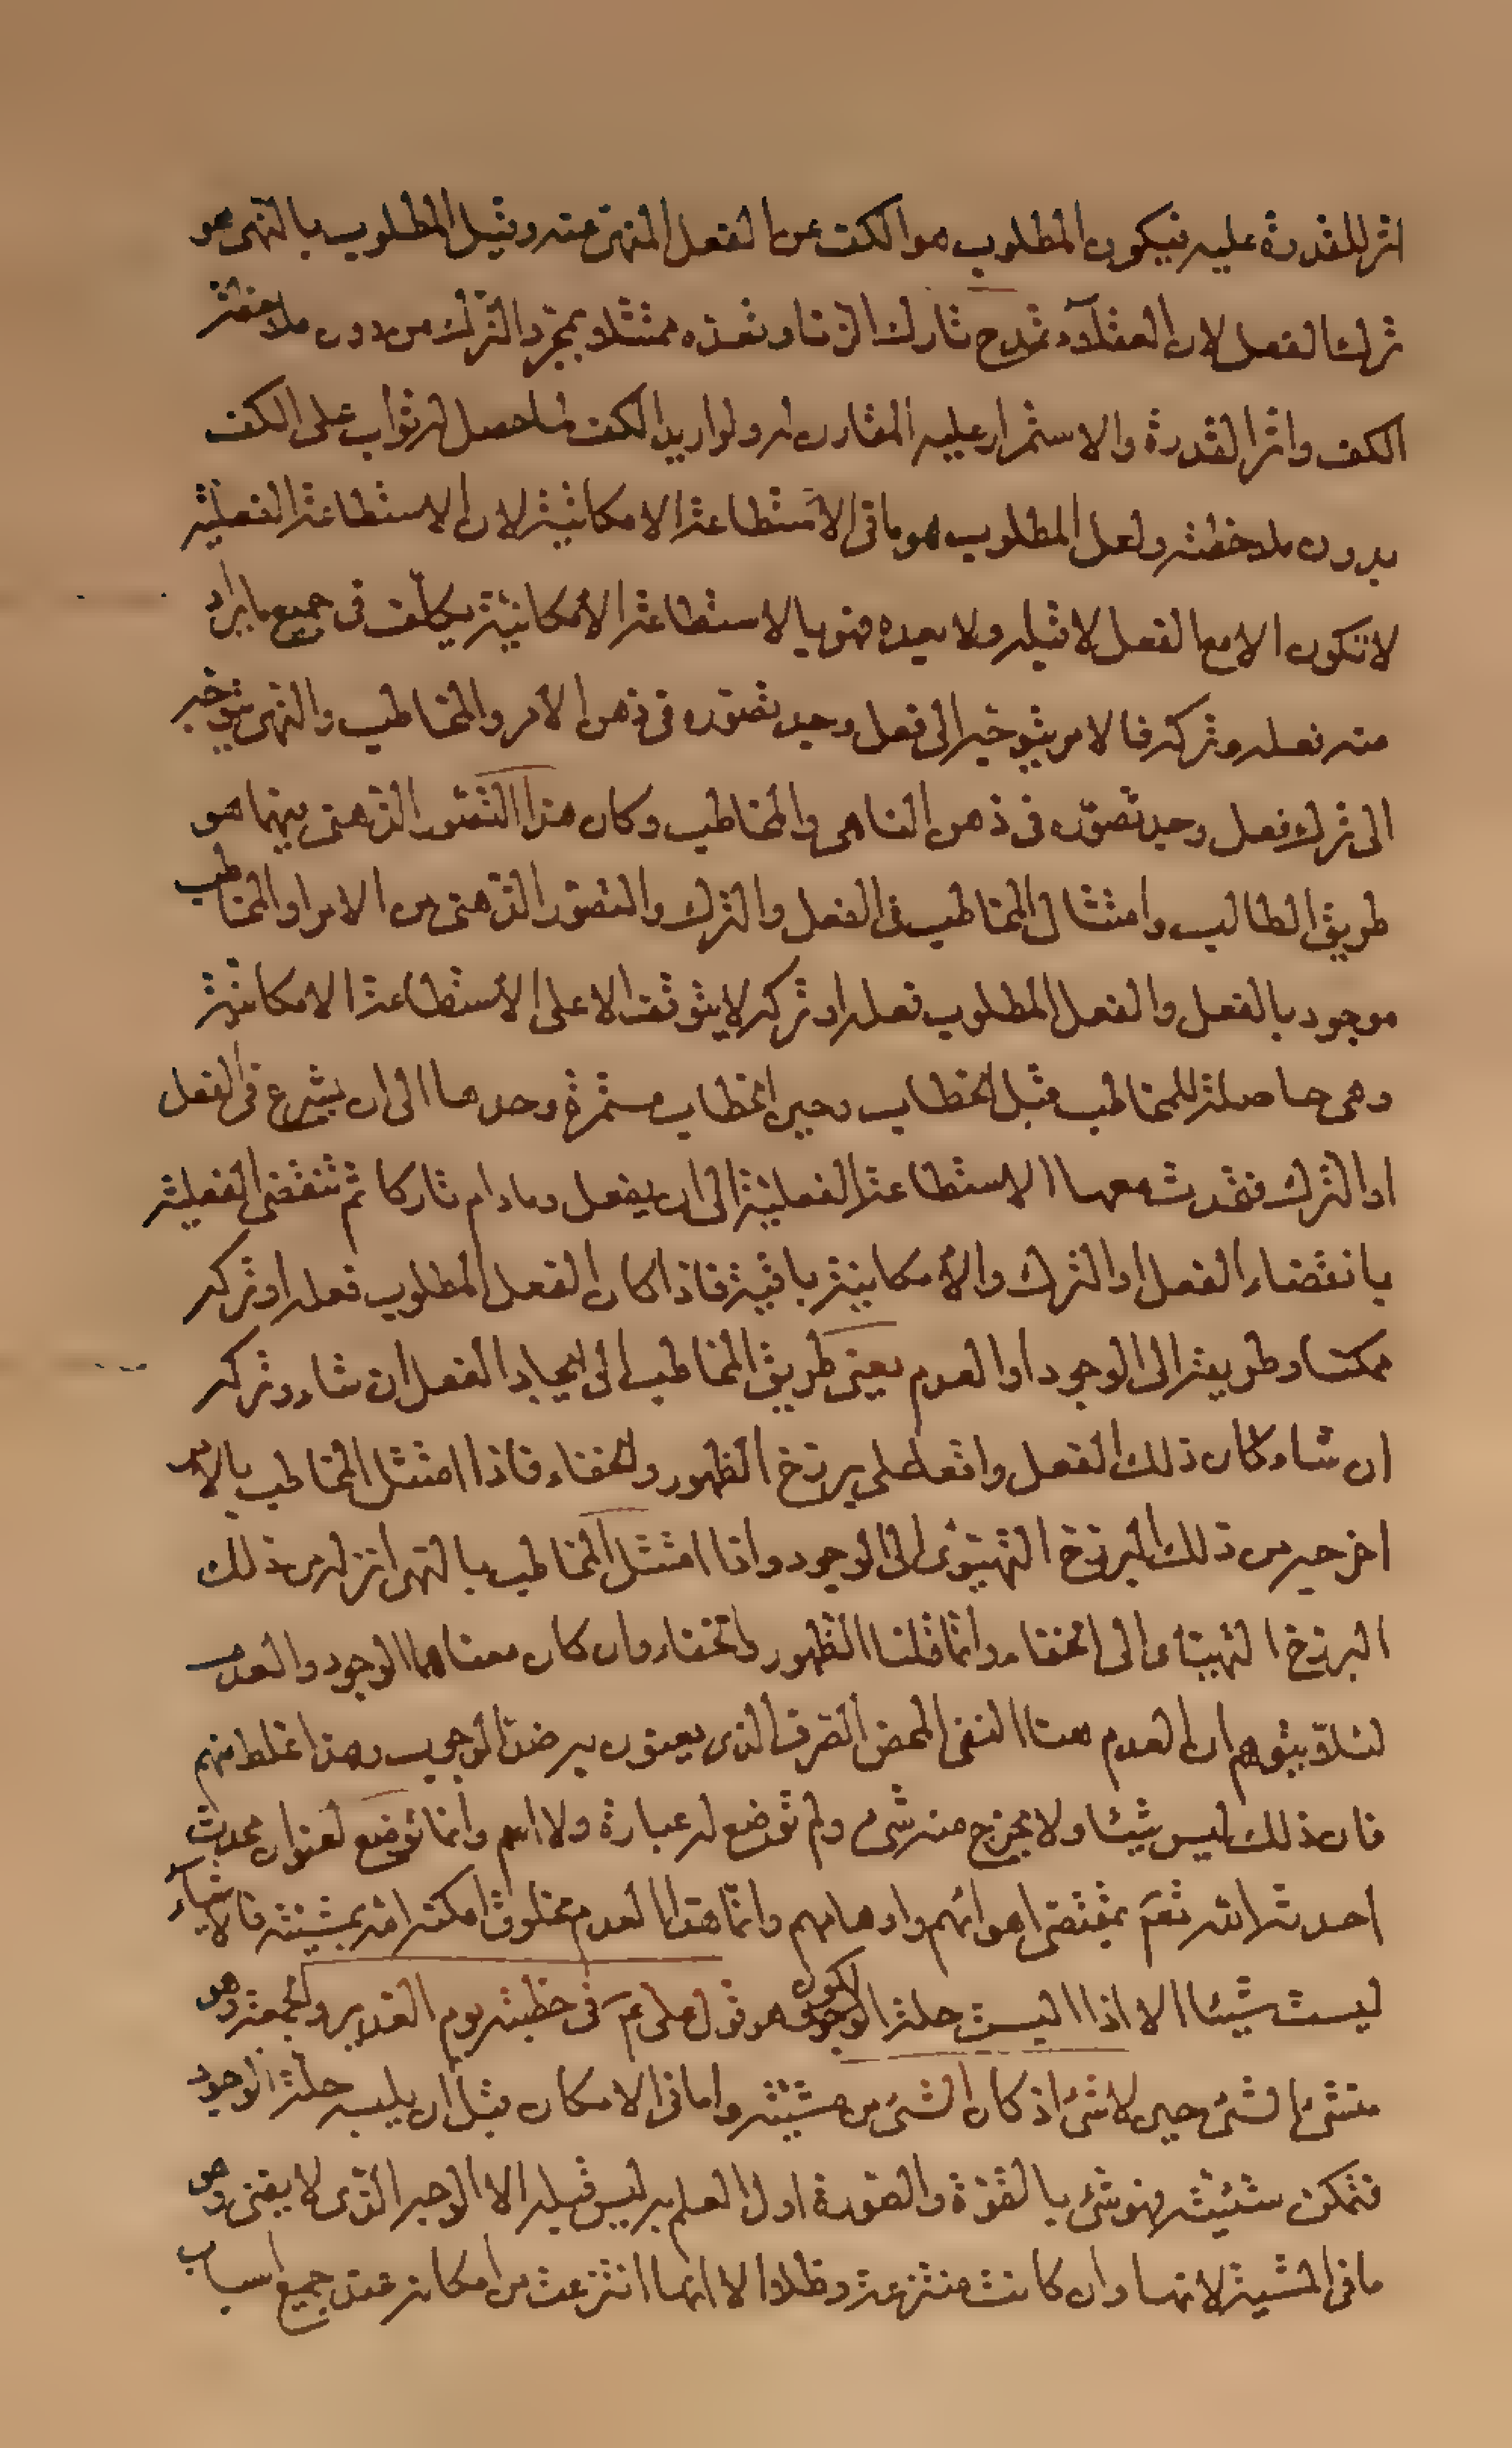 اثر للقدرة عليه فيكون المطلوب هو الكف عن الفعل المنهى عنه وقيل المطلوب بالنهى هو
ترك الفعل لان العقلاء تمدح تارك الزنا وتعده ممتثلا بمجرد الترك من دون ملاحظة
الكف واثر القدرة والاستمرار عليه المقارن له ولو اريد الكف لما حصل له ثواب على الكف
بدون ملاحظته ولعل المطلوب هو ما فى الاستطاعة الامكانية لان الاستطاعة الفعلية
لا تكون الا مع الفعل لا قبله ولا بعده فهو بالاستطاعة الامكانية يكلف فى جميع ما يراد
منه فعله وتركه فالامر يتوخير الى فعل وجد تصوره فى ذهن الامر والمخاطب والنهى يتوخير
الى ترك فعل وجد تصوره فى ذهن الناهى والمخاطب وكان هذا التصور الذهنى بينهما هو
طريق الطالب وامتثال المخاطب فى الفعل والترك والتصور الذهنى من الامر او المخاطب
موجود بالفعل والفعل المطلوب فعله او تركه لا يتوقف الا على الاستطاعة الامكانية
وهى حاصلة للمخاطب قبل الخطاب وحين الخطاب مستمرة وحدها الى ان يشرع فى الفعل
او الترك فتحدث معها الاستطاعة الفعلية الى ان يفعل ومادام تاركا ثم تنقضى الفعلية
بانقضاء الفعل او الترك والامكانية باقية فاذا كان الفعل المطلوب فعله او تركه
ممكنا وطريقة الى الوجود او العدم يعنى طريق المخاطب الى ايجاد الفعل ان شاء وتركه
ان شاء كان ذلك الفعل واقعا على برزخ الظهور والخفاء فاذا امتثل المخاطب بالامر
اخرجه من ذلك البرزخ التهيوئى الى الوجود واذا امتثل المخاطب بالنهى انزله من ذلك
البرزخ التهيئاى الى الخفاء وانما قلنا الظهور والخفاء وان كان معناهما الوجود والعدم
لئلا يتوهم ان العدم هنا النفى المحض الصرف الذى يعنون به ضد الوجوب وهذا غلط منهم
فان ذلك ليس شيئا ولا يخرج منه شىء ولم توضع له عبارة ولا اسم وانما توضع لعنوان محدث
احدثه الله تعم بمقتضى اهوائهم واوهامهم وانما هذا العدم مخلوق امكنه الله بمشيته فالاشياء
ليست شيئا الا اذا البست حلة الوجود الكون هو قول على عم فى خطبته يوم الغدير والجمعة وهو
منشئ الشئ حين لا شئ اذ كان الشئ من مشيته واما فى الامكان قبل ان يلبس حلة الوجود
فتمكن شيئيته فهو شئ بالقوة والصورة اول العلم به ليس قبله الا الوجه الذى لا يفنى وهو
ما فى المشية لانها وان كانت منتزعة وظلا الا انها انتزعت من امكانه عند جميع اسباب